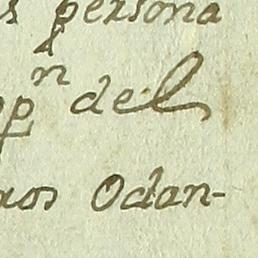 s persona
pp^n del
xos Odan-